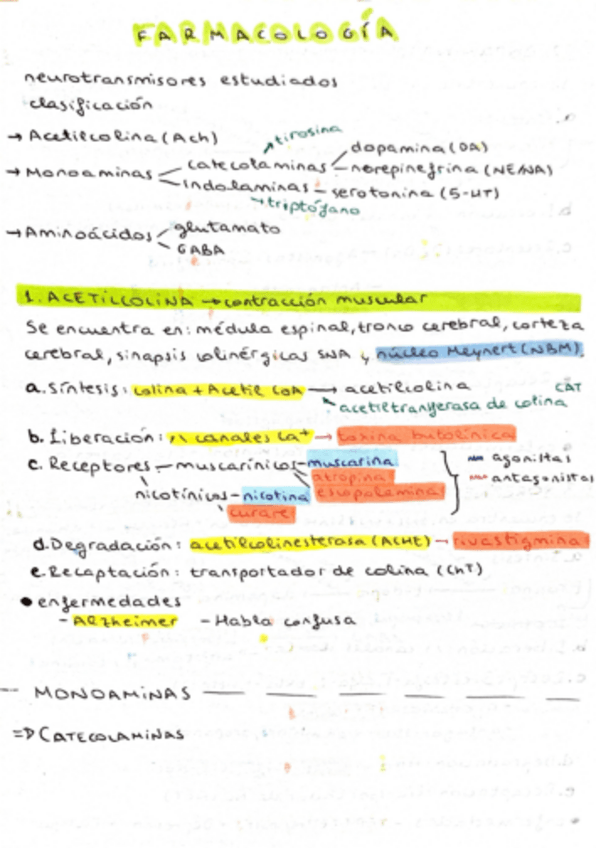 FARMACOLOGÍA
neurotransmisores estudiados
clasificación
→ Acetilcolina (Ach)
tirosina
→ Monoaminas
catecolaminas
dopamina (DA)
norepinefrina (NE/NA)
Indolaminas - serotonina (5-HT)
triptófano
→ Aminoácidos
glutamato
GABA
1. ACETILCOLINA → contracción muscular
Se encuentra en: médula espinal, tronco cerebral, corteza
cerebral, sinapsis colinérgicas SNA y núcleo Meynert (NBM).
a. Síntesis: colina + Acetil CoA → acetilcolina CAT
acetiltransferasa de colina
b. Liberación: canales Ca+ → toxina butolínica
c. Receptores - muscarínicos - muscarina
atropina
nicotínicos - nicotina escopolamina
curare
agonistas
antagonistas
d. Degradación: acetilcolinesterasa (AChE) → rivastigmina
e. Recaptación: transportador de colina (ChT)
• enfermedades
- Alzheimer - Habla confusa
MONOAMINAS
=D CATECOLAMINAS